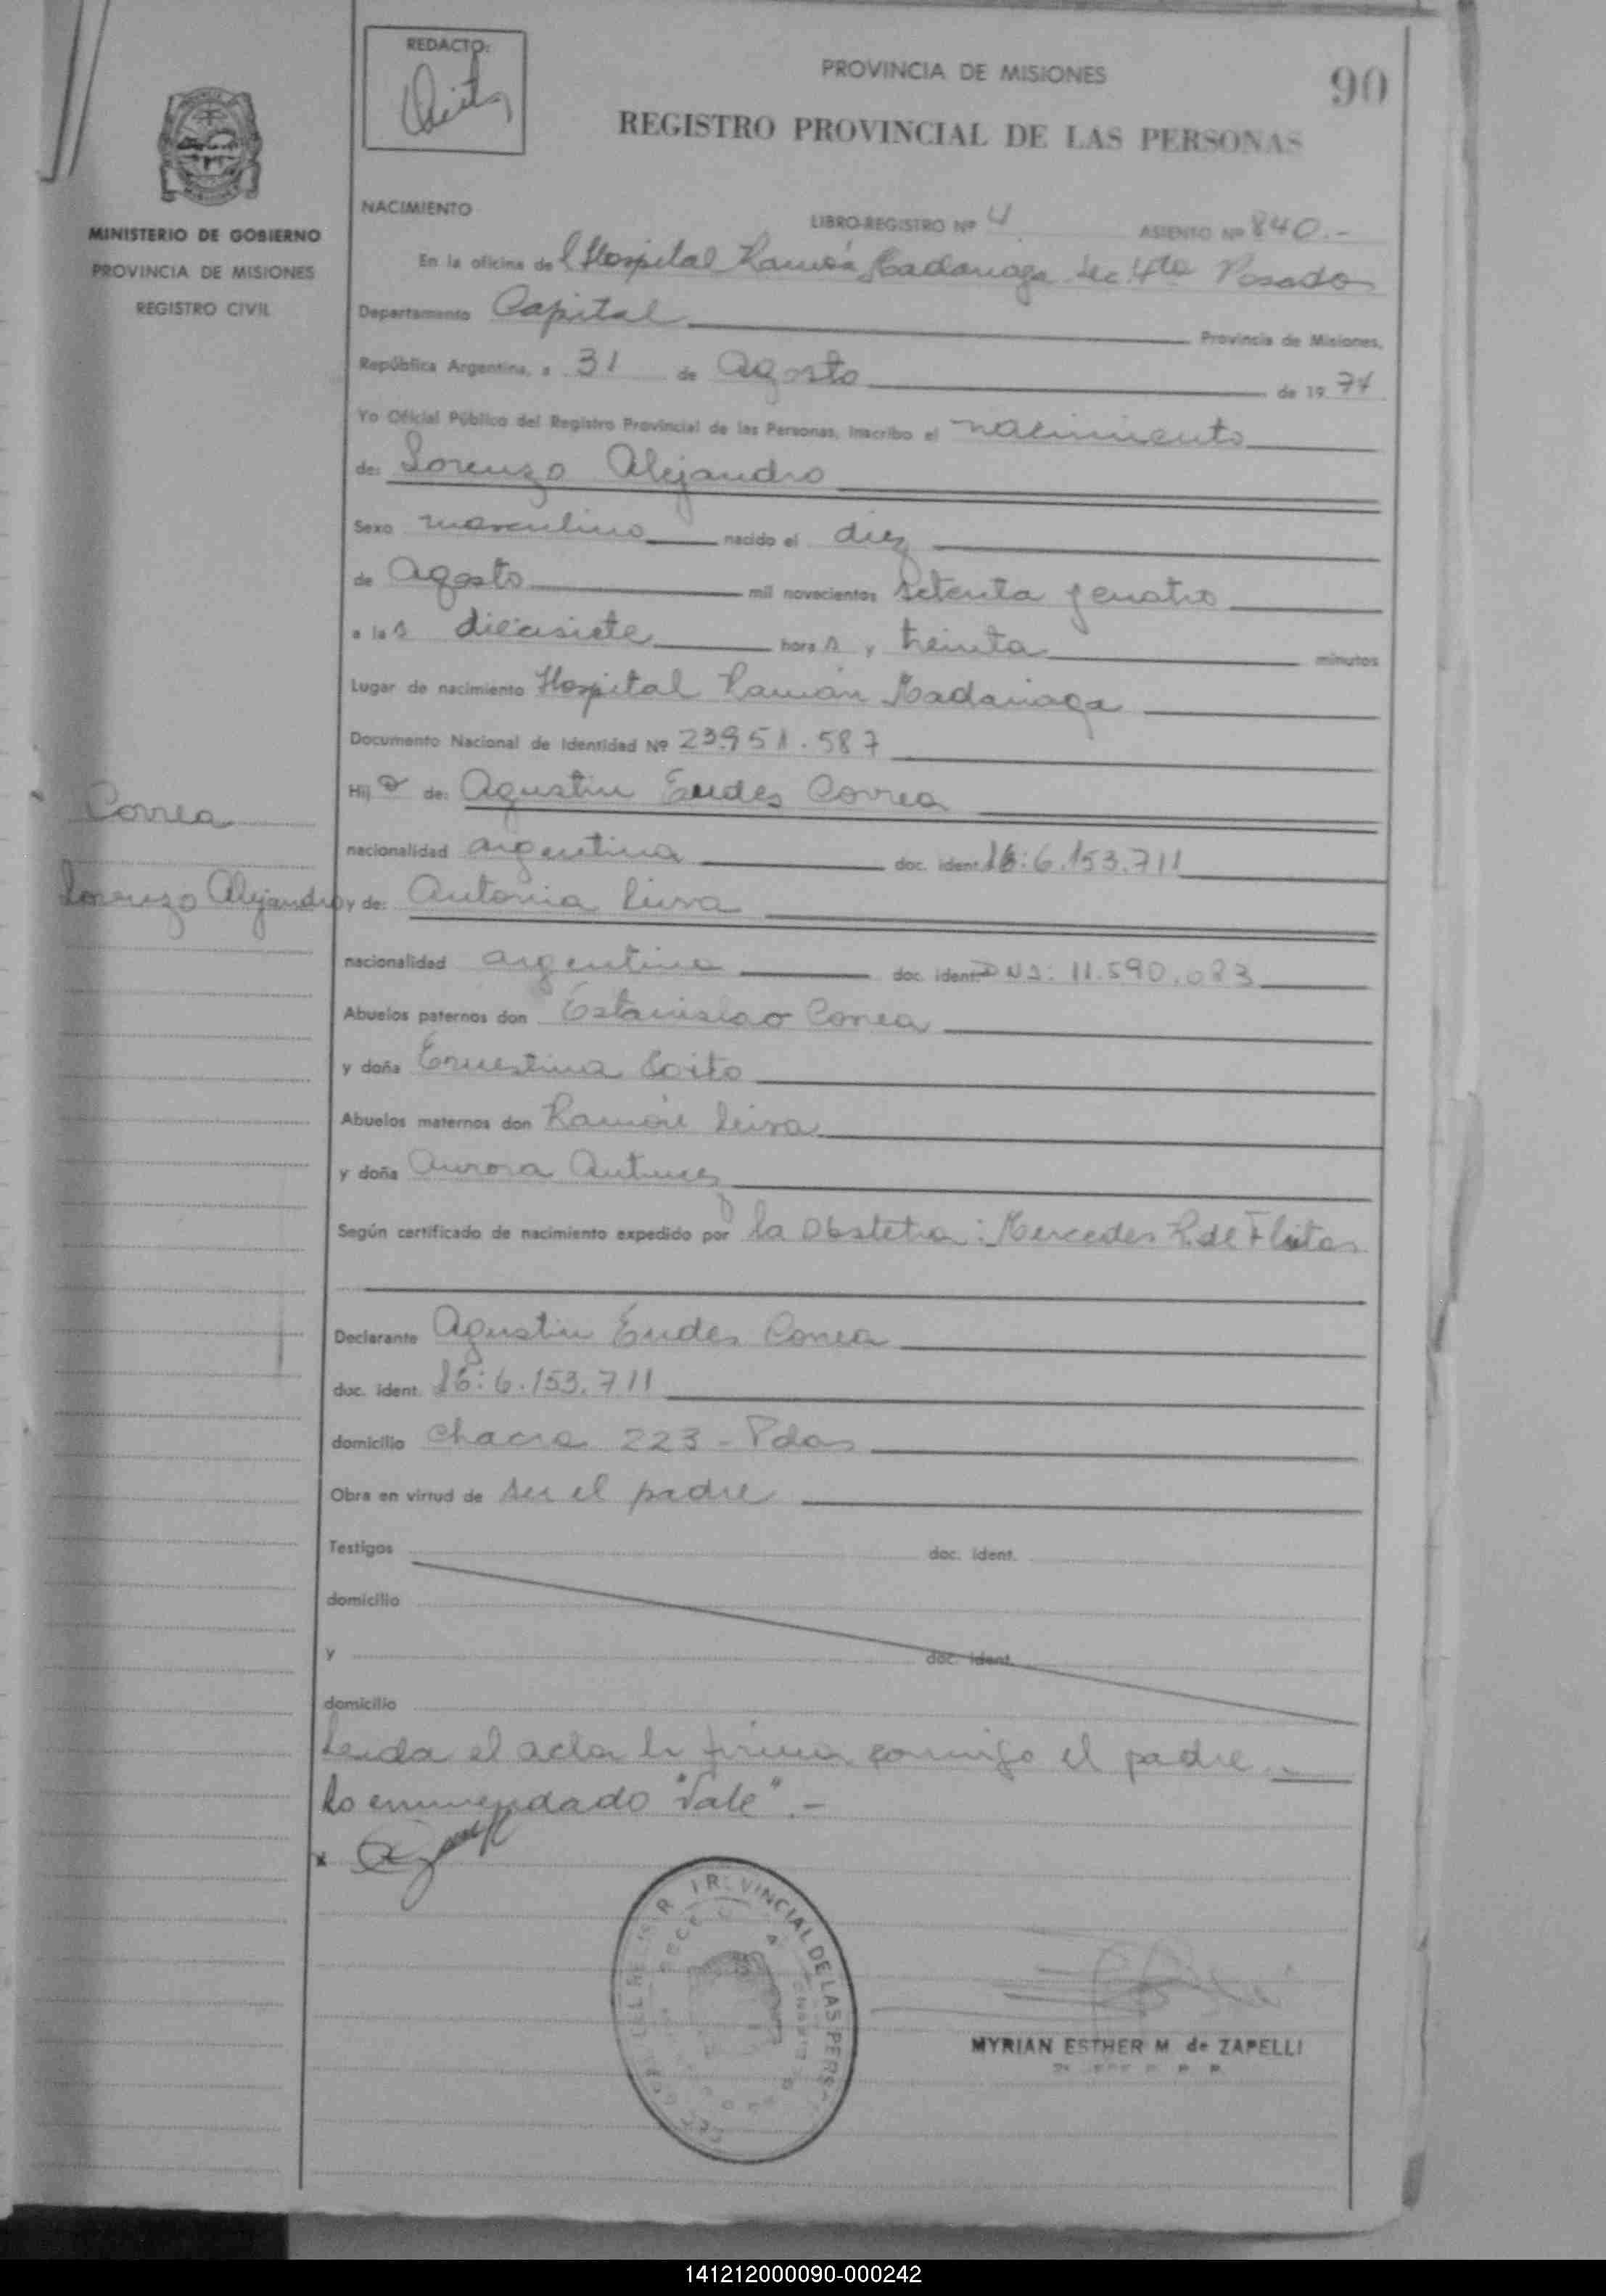 REDACTO:
PROVINCIA DE MISIONES
90
REGISTRO PROVINCIAL DE LAS PERSONAS
MINISTERIO DE GOBIERNO
PROVINCIA DE MISIONES
REGISTRO CIVIL
NACIMIENTO
LIBRO-REGISTRO Nº 4 ASIENTO Nº 840.-
En la oficina del Hospital Ramón Madariaga Sec 4ta Posadas
Departamento Capital Provincia de Misiones,
República Argentina, a 31 de Agosto de 1974
Yo Oficial Público del Registro Provincial de las Personas, inscribo el nacimiento
de: Lorenzo Alejandro
Sexo masculino nacido el diez
de Agosto mil novecientos setenta y cuatro
a las diecisiete horas y treinta minutos
Lugar de nacimiento Hospital Ramón Madariaga
Documento Nacional de Identidad Nº 23.951.587
Hijo de: Agustin Eudes Correa
Correa
nacionalidad argentina doc. ident. LE: 6.153.711
Lorenzo Alejandro
y de: Antonia Leiva
nacionalidad argentina doc. ident. DNI: 11.590.083
Abuelos paternos don Estanislao Correa
y doña Ernestina
Abuelos maternos don Ramón Leiva
y doña Aurora Antunez
Según certificado de nacimiento expedido por la Obstetra: Mercedes R. de Fleitas
Declarante Agustin Eudes Correa
doc. ident. LE: 6.153.711
domicilio Chacra 223 - Pdas
Obra en virtud de ser el padre
Testigos doc. ident.
domicilio
y doc. ident.
domicilio
Leida el acta la firma conmigo el padre.-
Lo enmendado "Vale".-
x
PROVINCIAL DE LAS PERS
MYRIAN ESTHER M. de ZAPELLI
141212000090-000242